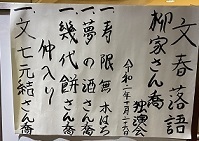 文春落語
柳家さん喬 独演会
令和二年十月二十六日
一 寿限無 木はち
一 夢の酒 さん喬
一 幾代餅 さん喬
仲入り
一 文七元結 さん喬